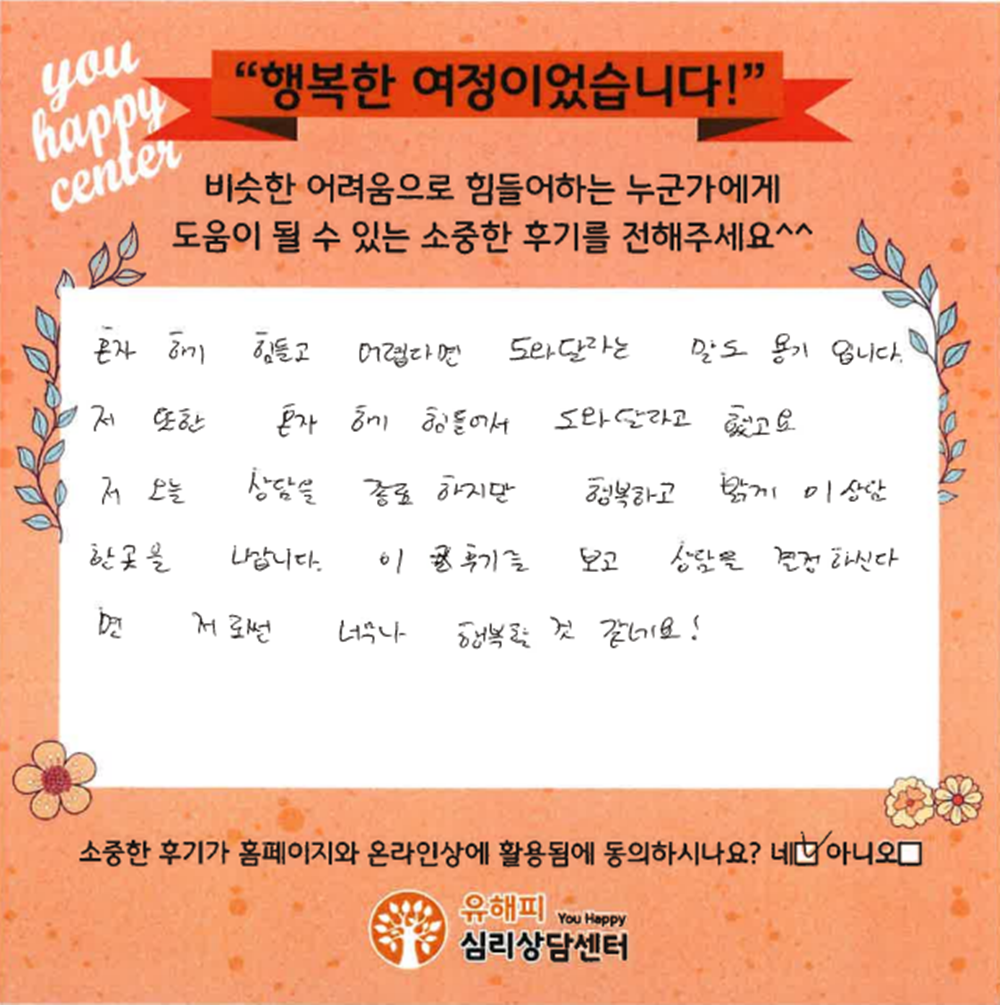 you
happy
center
“행복한 여정이었습니다!”
비슷한 어려움으로 힘들어하는 누군가에게
도움이 될 수 있는 소중한 후기를 전해주세요^^
혼자 하기 힘들고 어렵다면 도와달라는 말도 용기 입니다.
저 또한 혼자 하기 힘들어서 도와달라고 했고요
저 오늘 상담을 종료 하지만 행복하고 밝게 이 상담
한곳을 나갑니다. 이 후기를 보고 상담을 결정 하신다
면 저로썬 너무나 행복할 것 같네요!
소중한 후기가 홈페이지와 온라인상에 활용됨에 동의하시나요? 네☑ 아니오☐
유해피 You Happy
심리상담센터